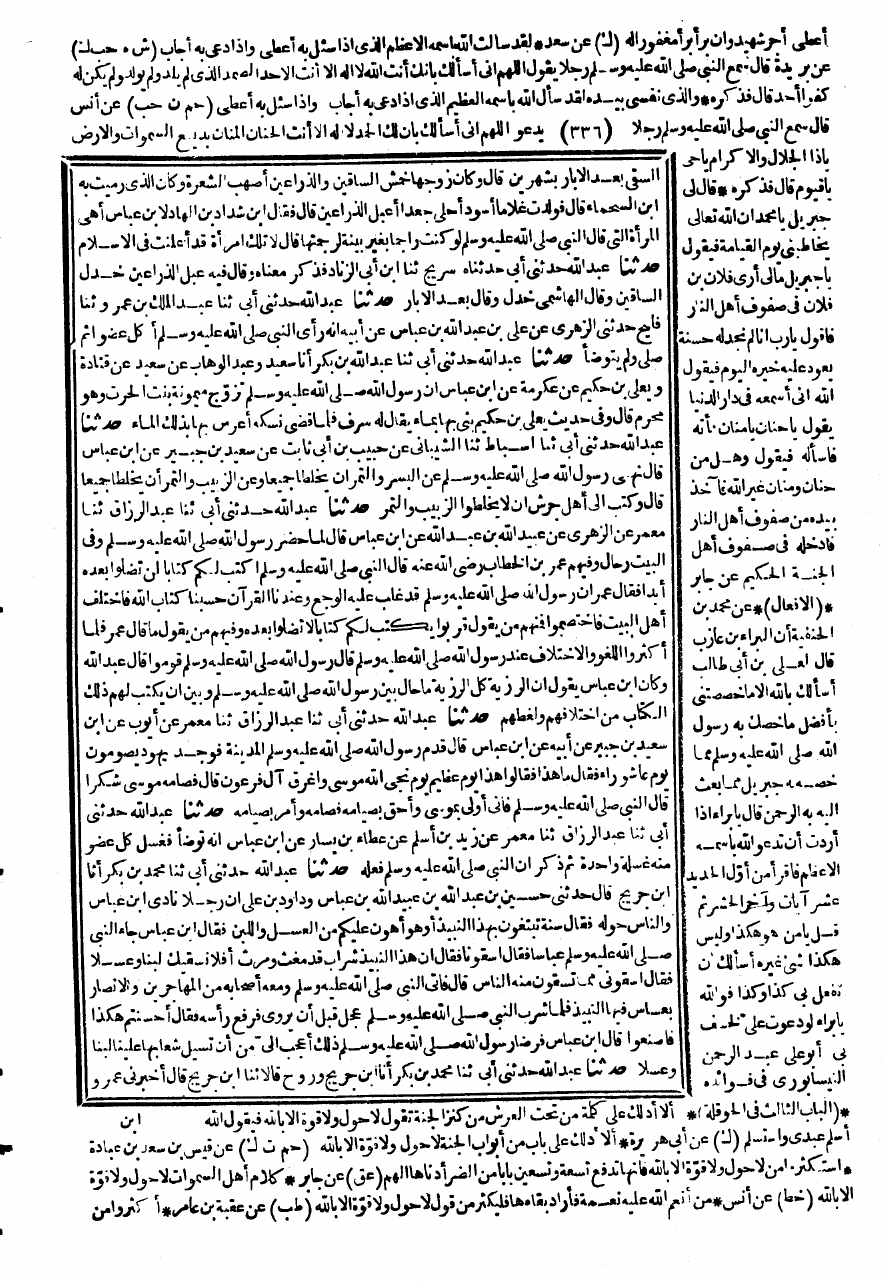 أعطى أجر شهيد وان برأ برأ مغفورا له (ك) عن سعد * لقد سألت الله باسمه الاعظم الذى اذا سئل به أعطى واذا دعى به أجاب (ش ه حب ك)
عن بريدة قال سمع النبى صلى الله عليه وسلم رجلا يقول اللهم انى أسألك بانك أنت الله لا اله الا أنت الاحد الصمد الذى لم يلد ولم يولد ولم يكن له
كفوا أحد قال فذكره * والذى نفسى بيده لقد سأل الله باسمه العظيم الذى اذا دعى به أجاب واذا سئل به أعطى (حم ن حب) عن أنس
قال سمع النبى صلى الله عليه وسلم رجلا (٣٣٦) يدعو اللهم انى أسألك بان لك الحمد لا اله الا أنت الحنان المنان بديع السموات والارض
ياذا الجلال والاكرام ياحى
ياقيوم قال فذكره * قال لى
جبريل يا محمد ان الله تعالى
يخاطبنى يوم القيامة فيقول
ياجبريل مالى أرى فلان بن
فلان فى صفوف أهل النار
فاقول يارب انا لم نجد له حسنة
يعود عليه خيره اليوم فيقول
الله انى أسمعه فى دار الدنيا
يقول ياحنان يامنان فأته
فاسأله فيقول وهل من
حنان ومنان غير الله فآخذ
بيده من صفوف أهل النار
فادخله فى صفوف أهل
الجنة الحكيم عن جابر
*(الافعال)* عن محمد بن
الحنفية أن البراء بن عازب
قال لعلى بن أبى طالب
أسألك بالله الا ما خصصتنى
بأفضل ما خصك به رسول
الله صلى الله عليه وسلم مما
خصه به جبريل مما بعث
اليه به الرحمن قال يا براء اذا
أردت أن تدعو الله باسمه
الاعظم فاقرأ من أول الحديد
عشر آيات وآخر الحشر ثم
قل يا من هو هكذا وليس
هكذا شئ غيره أسألك أن
تفعل بى كذا وكذا فوالله
يا براء لو دعوت على لخسف
بى أبو على عبد الرحمن
النيسابورى فى فوائده
السقى بعد الابار بشهرين قال وكان زوجها خمش الساقين والذراعين أصهب الشعرة وكان الذى رميت به
ابن السحماء قال فولدت غلاما أسود أجلى جعدا أعبل الذراعين قال فقال ابن شداد بن الهاد لابن عباس أهى
المرأة التى قال النبى صلى الله عليه وسلم لو كنت راجما بغير بينة لرجمتها قال لا تلك امرأة قد أعلنت فى الاسلام
حدثنا عبد الله حدثنى أبى حدثناه سريج ثنا ابن أبى الزناد فذكر معناه وقال فيه عبل الذراعين خدل
الساقين وقال الهاشمى خدل وقال بعد الابار حدثنا عبد الله حدثنى أبى ثنا عبد الملك بن عمرو ثنا
فليح حدثنى الزهرى عن على بن عبد الله بن عباس عن أبيه انه رأى النبى صلى الله عليه وسلم أكل عضوا ثم
صلى ولم يتوضأ حدثنا عبد الله حدثنى أبى ثنا عبد الله بن بكر أنا سعيد وعبد الوهاب عن سعيد عن قتادة
و يعلى بن حكيم عن عكرمة عن ابن عباس ان رسول الله صلى الله عليه وسلم تزوج ميمونة بنت الحرث وهو
محرم قال وفى حديث يعلى بن حكيم بنى بها بماء يقال له سرف فلما قضى نسكه أعرس بها بذلك الماء حدثنا
عبد الله حدثنى أبى ثنا اسباط ثنا الشيبانى عن حبيب بن أبى ثابت عن سعيد بن جبير عن ابن عباس
قال نهى رسول الله صلى الله عليه وسلم عن البسر والتمر ان يخلطا جميعا وعن الزبيب والتمر أن يخلطا جميعا
قال وكتب الى أهل جرش ان لا يخلطوا الزبيب والتمر حدثنا عبد الله حدثنى أبى ثنا عبد الرزاق ثنا
معمر عن الزهرى عن عبيد الله بن عبد الله عن ابن عباس قال لما حضر رسول الله صلى الله عليه وسلم وفى
البيت رجال وفيهم عمر بن الخطاب رضى الله عنه قال النبى صلى الله عليه وسلم اكتب لكم كتابا لن تضلوا بعده
أبدا فقال عمر ان رسول الله صلى الله عليه وسلم قد غلب عليه الوجع وعندنا القرآن حسبنا كتاب الله فاختلف
أهل البيت فاختصموا فمنهم من يقول قربوا يكتب لكم كتابا لا تضلوا بعده وفيهم من يقول ما قال عمر فلما
أكثروا اللغو والاختلاف عند رسول الله صلى الله عليه وسلم قال رسول الله صلى الله عليه وسلم قوموا قال عبد الله
وكان ابن عباس يقول ان الرزية كل الرزية ما حال بين رسول الله صلى الله عليه وسلم وبين ان يكتب لهم ذلك
الكتاب من اختلافهم ولغطهم حدثنا عبد الله حدثنى أبى ثنا عبد الرزاق ثنا معمر عن أيوب عن ابن
سعيد بن جبير عن أبيه عن ابن عباس قال قدم رسول الله صلى الله عليه وسلم المدينة فوجد يهود يصومون
يوم عاشوراء فقال ما هذا فقالوا هذا يوم عظيم يوم نجى الله موسى وأغرق آل فرعون قال فصامه موسى شكرا
قال النبى صلى الله عليه وسلم فانى أولى بموسى وأحق بصيامه فصامه وأمر بصيامه حدثنا عبد الله حدثنى
أبى ثنا عبد الرزاق ثنا معمر عن زيد بن أسلم عن عطاء بن يسار عن ابن عباس انه توضأ فغسل كل عضو
منه غسلة واحدة ثم ذكر ان النبى صلى الله عليه وسلم فعله حدثنا عبد الله حدثنى أبى ثنا محمد بن بكر أنا
ابن جريج قال حدثنى حسين بن عبد الله بن عبيد الله بن عباس وداود بن على ان رجلا نادى ابن عباس
والناس حوله فقال سنة تبتغون بهذا النبيذ أو هو أهون عليكم من العسل واللبن فقال ابن عباس جاء النبى
صلى الله عليه وسلم عباسا فقال اسقونا فقال ان هذا النبيذ شراب قد مغث ومرث أفلا نسقيك لبنا وعسلا
فقال اسقونى مما تسقون منه الناس قال فاتى النبى صلى الله عليه وسلم ومعه أصحابه من المهاجرين والانصار
بعساس فيها النبيذ فلما شرب النبى صلى الله عليه وسلم عجل قبل أن يروى فرفع رأسه فقال أحسنتم هكذا
فاصنعوا قال ابن عباس فرضا رسول الله صلى الله عليه وسلم ذلك أعجب الى من أن تسيل شعابها علينا لبنا
وعسلا حدثنا عبد الله حدثنى أبى ثنا محمد بن بكر أنا ابن جريج وروح قال ثنا ابن جريج قال أخبرنى عمرو
*(الباب الثالث فى الحوقلة)* ألا أدلك على كلمة من تحت العرش من كنز الجنة تقول لا حول ولا قوة الا بالله فيقول الله ابن
أسلم عبدى واستسلم (ك) عن أبى هريرة * ألا أدلك على باب من أبواب الجنة لا حول ولا قوة الا بالله (حم ت ك) عن قيس بن سعد بن عبادة
* استكثروا من لا حول ولا قوة الا بالله فانها تدفع تسعة وتسعين بابا من الضر أدناها الهم (عق) عن جابر * كلام أهل السموات لا حول ولا قوة
الا بالله (خط) عن أنس * من أنعم الله عليه نعمة فأراد بقاءها فليكثر من قول لا حول ولا قوة الا بالله (طب) عن عقبة بن عامر * أكثروا من